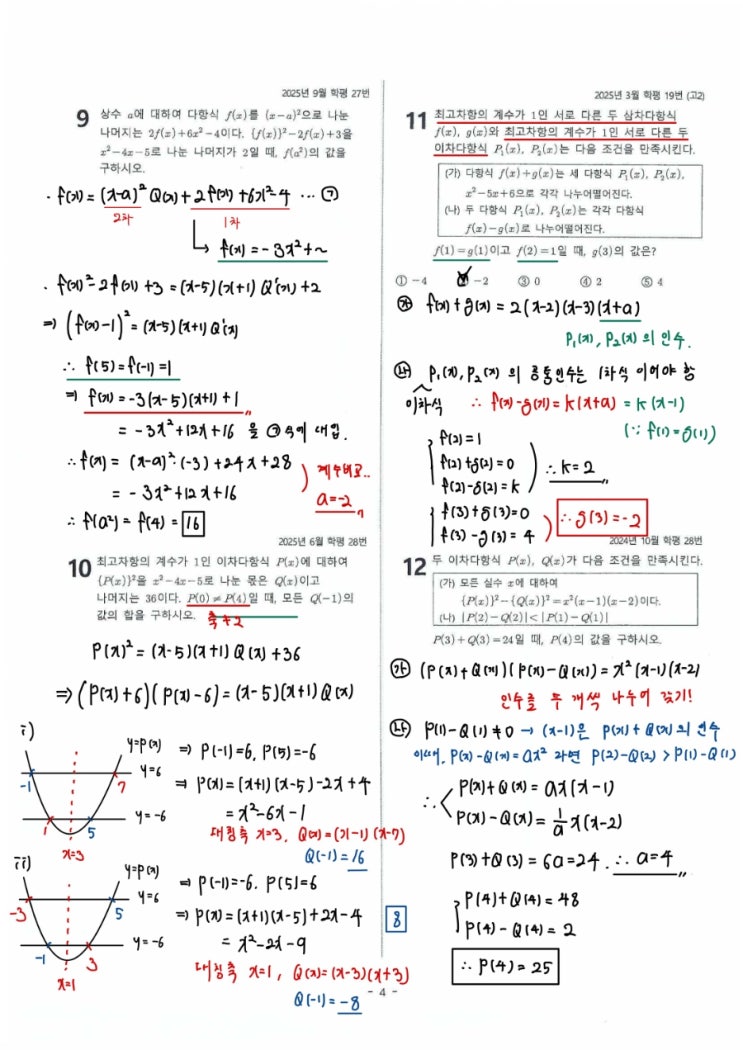 2025년 9월 학평 27번
9 상수 a에 대하여 다항식 f(x)를 (x-a)²으로 나눈
나머지는 2f(x)+6x²-4이다. {f(x)}²-2f(x)+3을
x²-4x-5로 나눈 나머지가 2일 때, f(a²)의 값을
구하시오.
· f(x) = (x-a)² Q(x) + 2f(x) + 6x² - 4 ··· ㉠
2차 1차
↳ f(x) = -3x² + ~
· f(x)² - 2f(x) + 3 = (x-5)(x+1) Q'(x) + 2
⇒ (f(x)-1)² = (x-5)(x+1) Q'(x)
∴ f(5) = f(-1) = 1
⇒ f(x) = -3(x-5)(x+1) + 1
= -3x² + 12x + 16 을 ㉠식에 대입.
∴ f(x) = (x-a)²·(-3) + 24x + 28
= -3x² + 12x + 16
계수비교..
a = -2
∴ f(a²) = f(4) = 16
2025년 6월 학평 28번
10 최고차항의 계수가 1인 이차다항식 P(x)에 대하여
{P(x)}²을 x²-4x-5로 나눈 몫은 Q(x)이고
나머지는 36이다. P(0)≠P(4)일 때, 모든 Q(-1)의
값의 합을 구하시오.
축≠2
P(x)² = (x-5)(x+1) Q(x) + 36
⇒ (P(x)+6)(P(x)-6) = (x-5)(x+1) Q(x)
i)
y=P(x)
y=6
y=-6
-1 7
1 5
x=3
⇒ P(-1)=6, P(5)=-6
⇒ P(x) = (x+1)(x-5) - 2x + 4
= x² - 6x - 1
대칭축 x=3, Q(x) = (x-1)(x-7)
Q(-1) = 16
ii)
y=P(x)
y=6
y=-6
-3 5
-1 3
x=1
⇒ P(-1)=-6, P(5)=6
⇒ P(x) = (x+1)(x-5) + 2x - 4
= x² - 2x - 9
대칭축 x=1, Q(x) = (x-3)(x+3)
Q(-1) = -8
8
2025년 3월 학평 19번 (고2)
11 최고차항의 계수가 1인 서로 다른 두 삼차다항식
f(x), g(x)와 최고차항의 계수가 1인 서로 다른 두
이차다항식 P₁(x), P₂(x)는 다음 조건을 만족시킨다.
(가) 다항식 f(x)+g(x)는 세 다항식 P₁(x), P₂(x),
x²-5x+6으로 각각 나누어떨어진다.
(나) 두 다항식 P₁(x), P₂(x)는 각각 다항식
f(x)-g(x)로 나누어떨어진다.
f(1)=g(1)이고 f(2)=1일 때, g(3)의 값은?
① -4 ② -2 ③ 0 ④ 2 ⑤ 4
㉮ f(x)+g(x) = 2(x-2)(x-3)(x+a)
P₁(x), P₂(x) 의 인수.
㉯ P₁(x), P₂(x) 의 공통인수는 1차식 이어야 함
이차식 ∴ f(x)-g(x) = k(x+a) = k(x-1)
(∵ f(1)=g(1))
f(2)=1
f(2)+g(2)=0
f(2)-g(2)=k
∴ k=2
f(3)+g(3)=0
f(3)-g(3)=4
∴ g(3)=-2
2024년 10월 학평 28번
12 두 이차다항식 P(x), Q(x)가 다음 조건을 만족시킨다.
(가) 모든 실수 x에 대하여
{P(x)}²-{Q(x)}²=x²(x-1)(x-2)이다.
(나) |P(2)-Q(2)|<|P(1)-Q(1)|
P(3)+Q(3)=24일 때, P(4)의 값을 구하시오.
㉮ (P(x)+Q(x))(P(x)-Q(x)) = x²(x-1)(x-2)
인수를 두 개씩 나누어 갖기!
㉯ P(1)-Q(1)≠0 → (x-1)은 P(x)+Q(x)의 인수
이때, P(x)-Q(x)=ax² 라면 P(2)-Q(2) > P(1)-Q(1)
∴ P(x)+Q(x) = ax(x-1)
P(x)-Q(x) = 1/a x(x-2)
P(3)+Q(3) = 6a = 24. ∴ a=4
P(4)+Q(4) = 48
P(4)-Q(4) = 2
∴ P(4) = 25
- 4 -